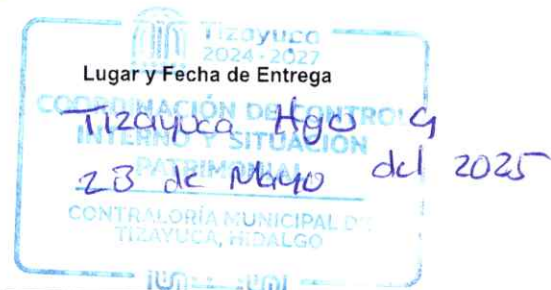 Tizayuca
2024-2027
Lugar y Fecha de Entrega
COORDINACIÓN DE CONTROL
Tizayuca Hgo a
INTERNO Y SITUACIÓN
PATRIMONIAL
23 de Mayo del 2025
CONTRALORÍA MUNICIPAL DE
TIZAYUCA, HIDALGO